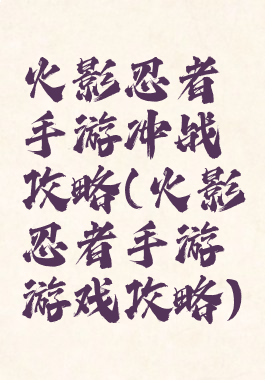 火影忍者
手游冲战
攻略(火影
忍者手游
游戏攻略)